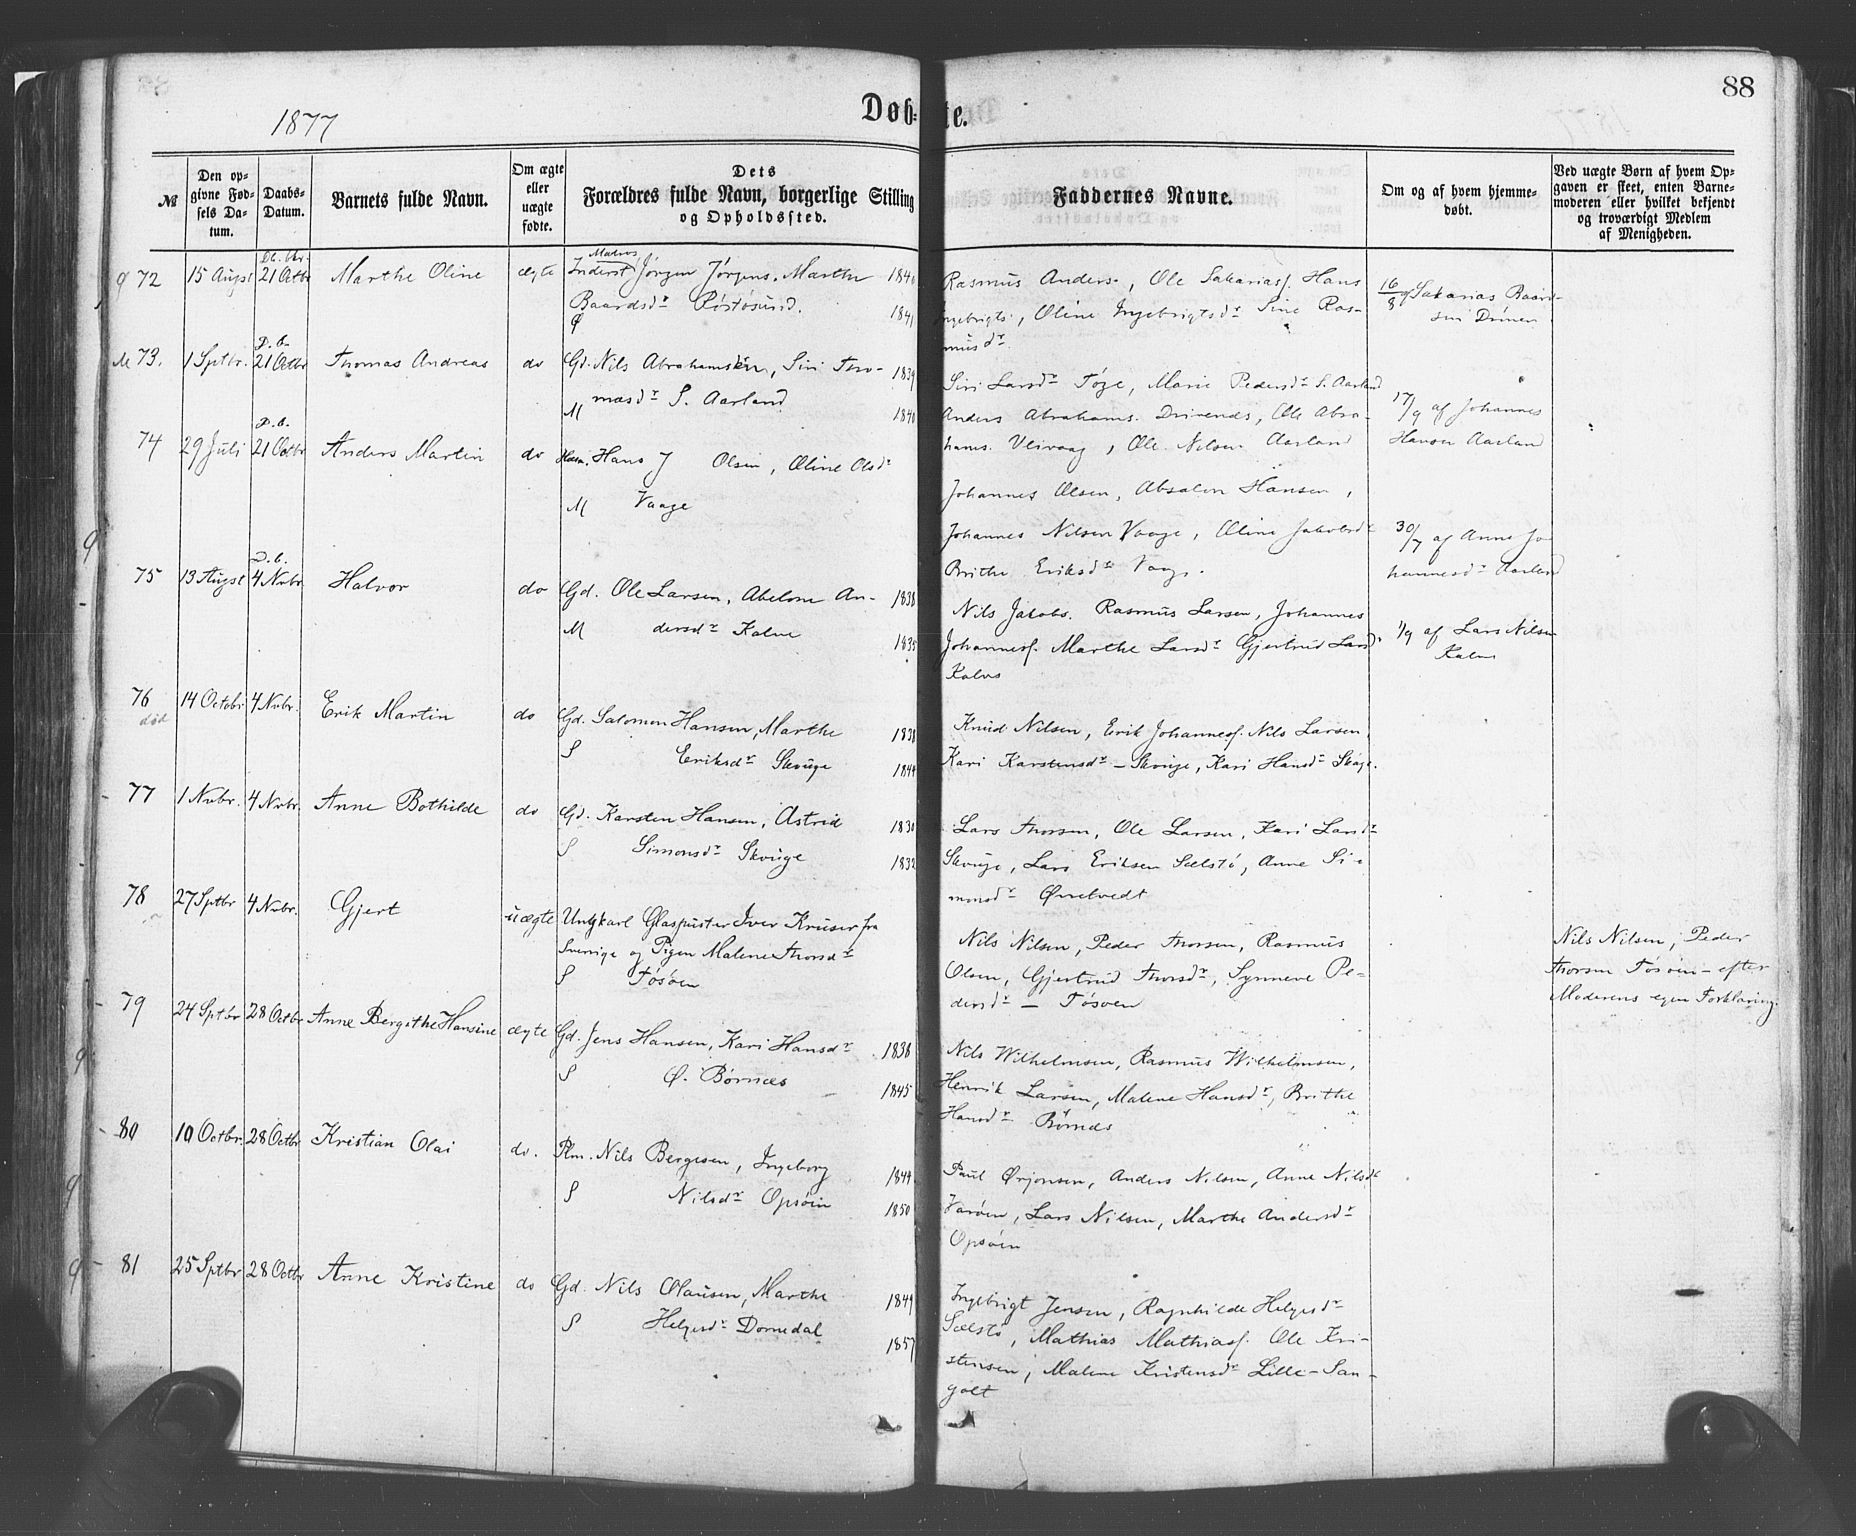 88
1877
Döb= te.
№
Den op-
givne Fød-
sels Da-
tum.
Daabs-
Datum.
Barnets fulde Navn.
Om ægte
eller
uægte
fødte.
Dets
Forældres fulde Navn, borgerlige Stilling
og Opholdssted.
Faddernes Navne.
Om og af hvem hjemme-
døbt.
Ved uægte Børn af hvem Op-
gaven er skeet, enten Barne-
moderen eller hvilket bekjendt
og troværdigt Medlem
af Menigheden.
72 15 Augst 21 Octbr Marthe Oline ægte Inderst Matros Jørgen Jørgens. Marthe 1840
Baardsdr 1841
Rasmus Anders., Ole Sakariasf. Hans
Ingebrigts., Oline Ingebrigtsdr Sine Ras-
musdr
16/8 af Sakarias Baard-
sen
73. 1 Sptbr. D. b. 21 Octbr Thomas Andreas do Gd. Nils Abrahamsen, Siri Tho- 1839
M masdr S. Aarland 1840
Siri Larsdr Tøge, Marie Pedersdr S. Aarland
Anders Abrahams. Drivenes, Ole Abra-
hams. Veivaag, Ole Nilsen Aarland
17/9 af Johannes
Hansen Aarland
74 29 Juli D. b. 21 Octbr Anders Martin do Hans J Olsen, Oline Olsdr
M Vaage
Johannes Olsen, Absalon Hansen,
Johannes Nilsen Vaage, Oline Jakobsdr
Brithe Eriksdr Vaage.
30/7 af Anne Jo-
hannesdr Aarland
75 13 Augst D. b. 4 Nvbr. Halvor do Gd. Ole Larsen, Abelone An- 1838
M dersdr Kalve 1835
Nils Jakobs. Rasmus Larsen, Johannes
Johannesf. Marthe Larsdr Gjertrud Larsd.
Kalve
1/9 af Lars Nilsen
Kalve
76 14 Octobr 4 Nvbr. Erik Martin do Gd. Salomon Hansen, Marthe 1838
død S Eriksdr Skouge 1844
Knud Nilsen, Erik Johannesf. Nils Larsen,
Kari Karstensdr – Skouge, Kari Hansdr Skoge.
77 1 Nvbr. 4 Nvbr. Anne Bothilde do Gd. Karsten Hansen, Astrid 1830
S Simonsdr Skouge 1832
Lars Thorsen, Ole Larsen, Kari Larsdr
Skouge, Lars Eriksen Sælstø, Anne Si-
monsdr Øvretvedt
78 27 Sptbr 4 Nvbr. Gjert uægte Ungkarl Glaspuster Iver Kruser fra
Sverrige og Pigen Malene Thorsdr
S Tøsøen
Nils Nilsen, Peder Thorsen, Rasmus
Olsen, Gjertrud Thorsdr, Synneve Pe-
dersdr – Tøsøen
Nils Nilsen, Peder
Thorsen Tøsøen – efter
Moderens egen Forklaring.
79 24 Sptbr 28 Octbr Anne Bergithe Hansine ægte Gd. Jens Hansen, Kari Hansdr 1838
S Ø. Børnæs 1845
Nils Wilhelmsen, Rasmus Wilhelmsen,
Henrik Larsen, Malene Hansdr, Brithe
Hansdr Børnæs
80 10 Octbr. 28 Octbr Kristian Olai do. Plm. Nils Bergesen, Ingeborg 1844
S Nilsdr Opsøen 1850
Paul Ørjansen, Anders Nilsen, Anne Nilsdr
Varøen, Lars Nilsen, Marthe Andersdr
Opsøen
81 25 Sptbr 28 Octbr Anne Kristine do Gd. Nils Olausen, Marthe 1849
S Helgesdr Dommedal 1857
Ingebrigt Jensen, Ragnhilde Helgesdr
Sælstø, Mathias Mathiasf. Ole Kri-
stensen, Malene Kristensdr Lille-San-
golt